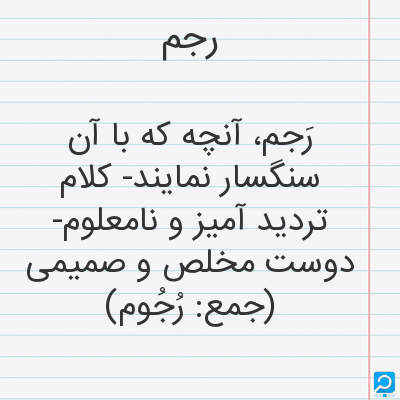 رجم
رَجم، آنچه که با آن
سنگسار نمایند- کلام
تردید آمیز و نامعلوم-
دوست مخلص و صمیمی
(جمع: رُجُوم)